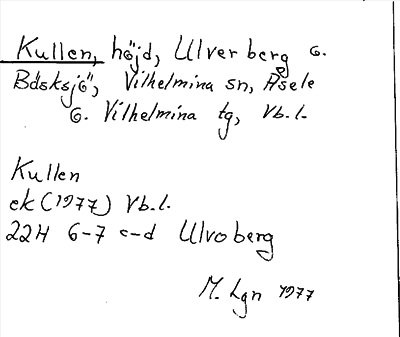 Kullen, höjd, Ulverberg o.
Bäsksjö, Vilhelmina sn, Åsele
o. Vilhelmina tg, Vb.l.
Kullen
ek (1977) Vb.l.
22H 6-7 c-d Ulvoberg
M. Lgn 1977